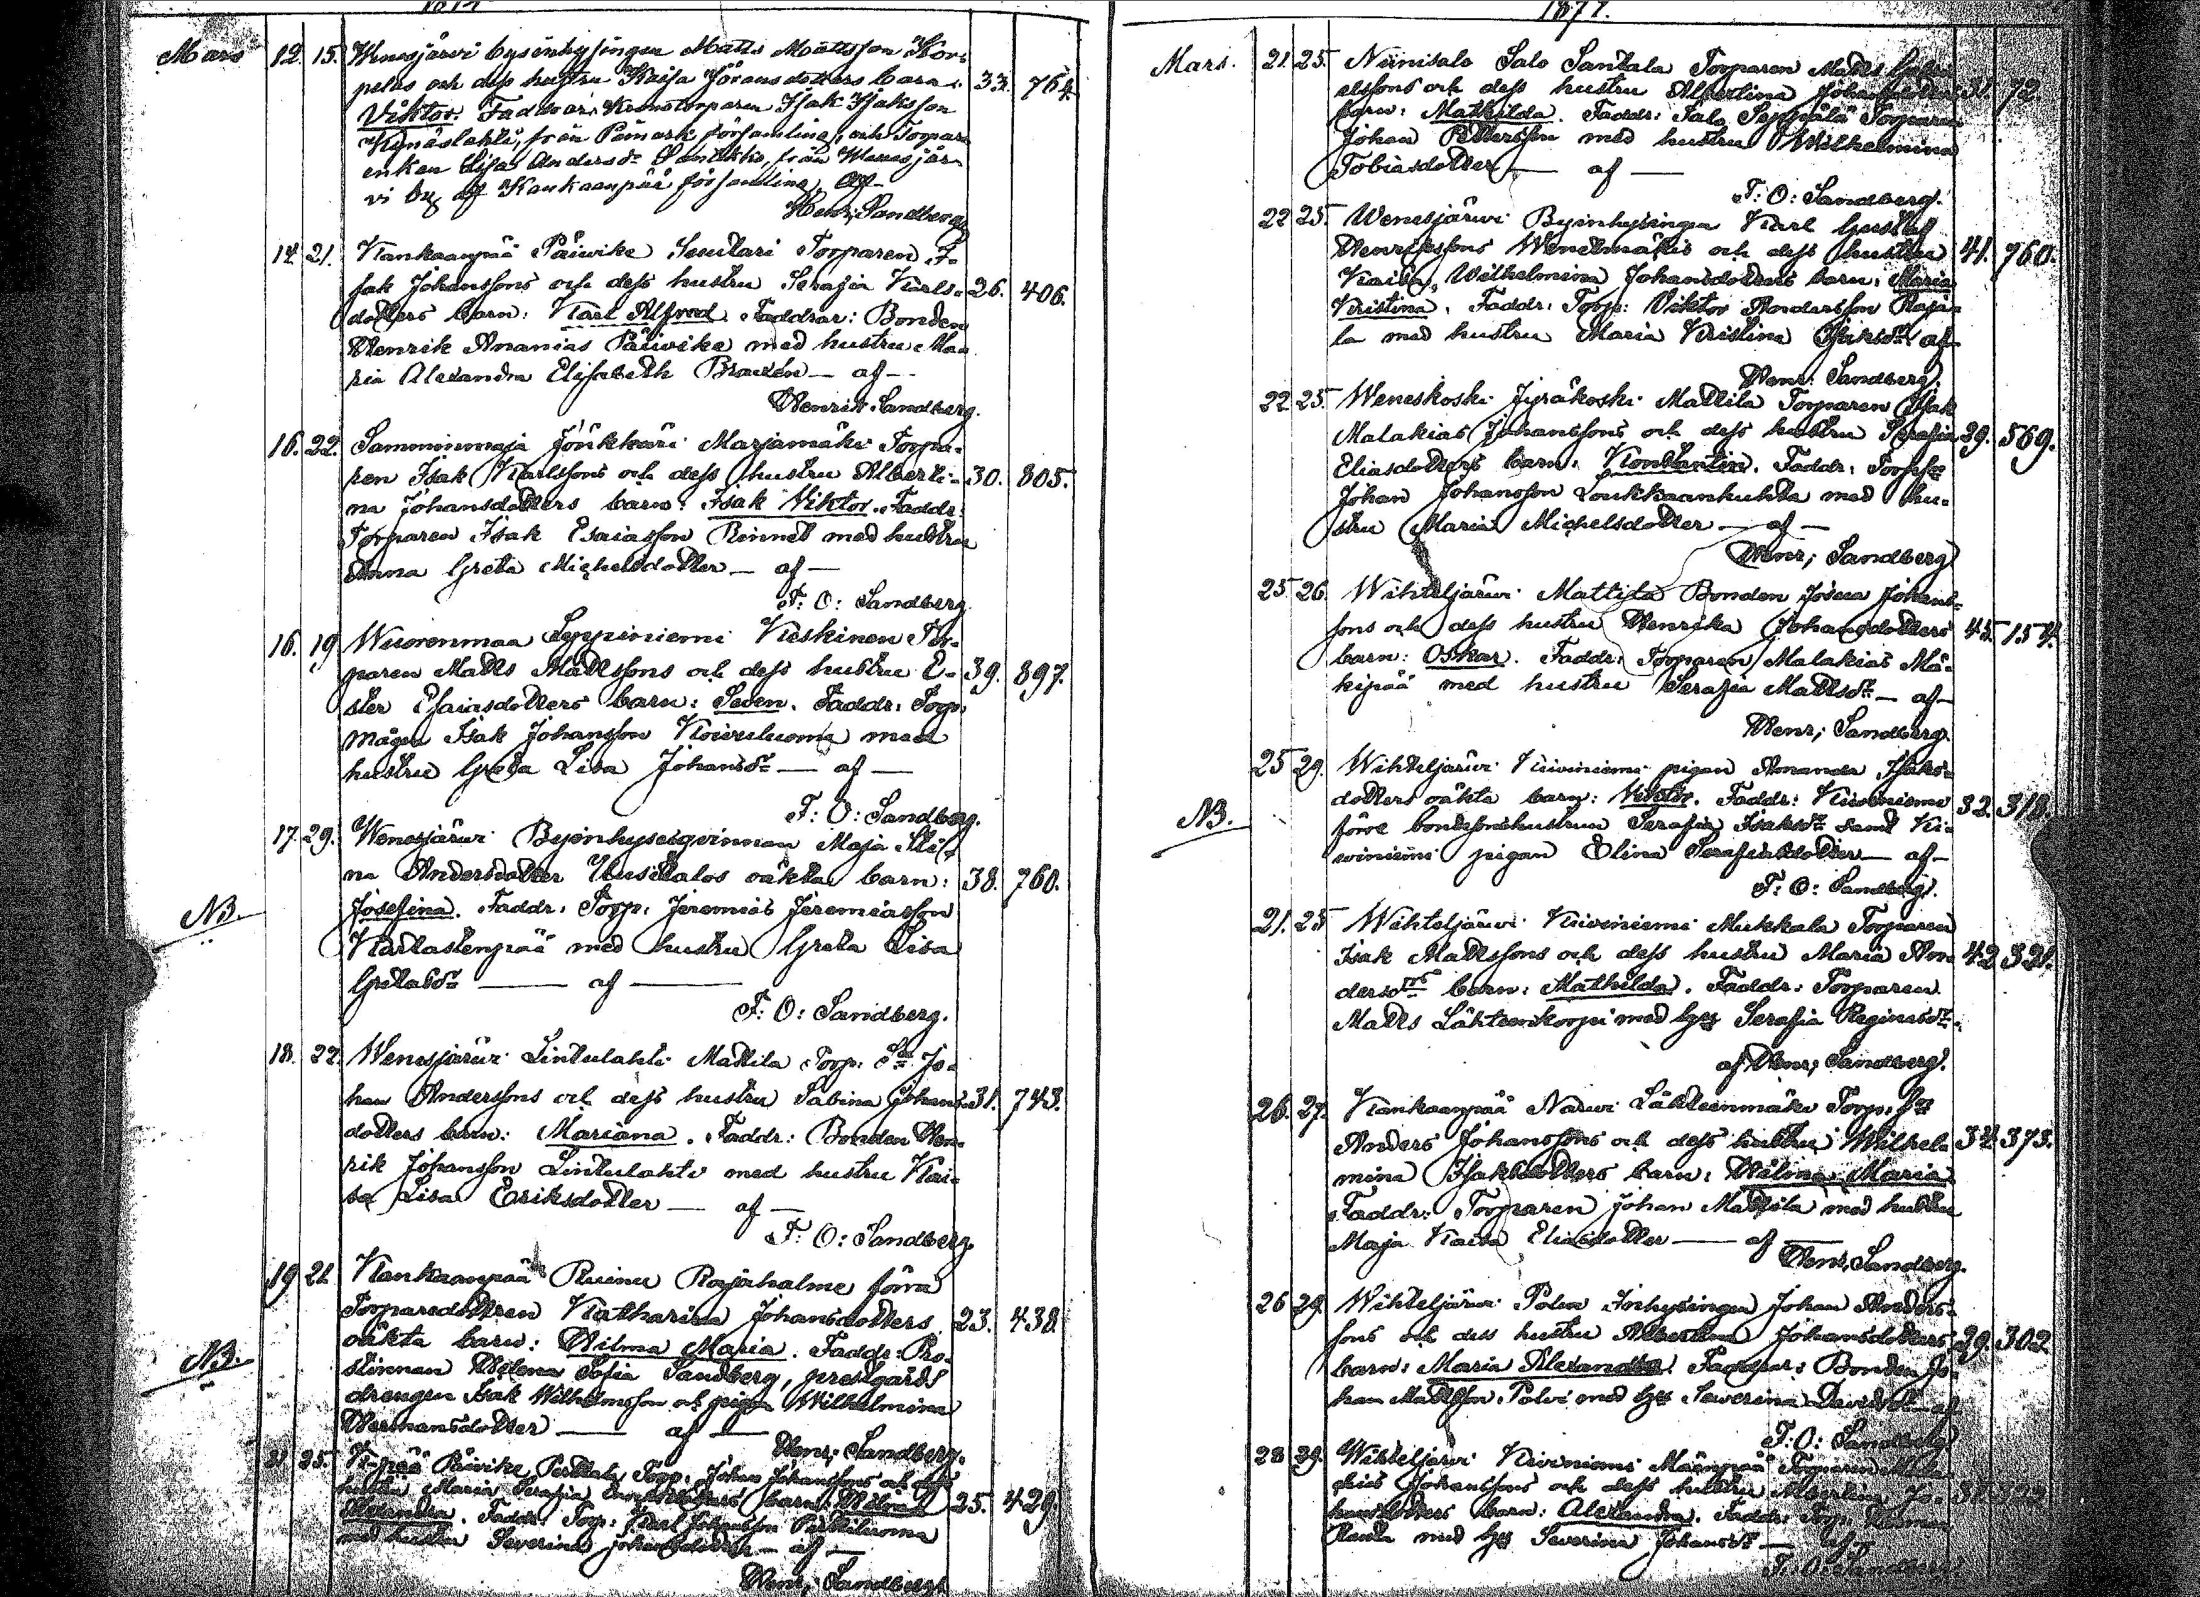 1877.
Mars 12. 15. Wenesjärvi byeinhysingen Matts Mattsson Kor-
pelas och dess hustru Kaisa Göransdotters barn: 33. 764.
Viktor. Faddrar: Kronotorparen Isak Isaksson
Kynäslahti, från Påmark församling, och Torpare
enkan Lisa Andersdr Santikko, från Wenesjär-
vi by af Kankaanpää församling, af
Henr; Sandberg.
14. 21. Kankaanpää Päiwike Seutari Torparen I-
sak Johanssons och dess hustru Serafia Karls- 26. 406.
dotters barn: Karl Alfred. Faddrar: Bonden
Henrik Ananias Päiwike med hustru Ma-
ria Alexandra Elisabeth — af —
Henrik Sandberg.
16. 22. Samminmaja Jörikkäri Marjamäki Torpa-
ren Isak Karlssons och dess hustru Alberti- 30. 805.
na Johansdotters barn: Isak Viktor. Faddr:
Torparen Isak Esaiasson Rinnet med hustru
Anna Greta Michelsdotter — af —
F: O: Sandberg.
16. 19 Wuorenmaa Leppiniemi Kieskinen Tor-
paren Matts Mattssons och dess hustru E- 39. 897.
ster Esaiasdotters barn: Seven. Faddr: Torp:
mågen Isak Johansson Koivuluoma med
hustru Greta Lisa Johansdr — af —
F: O: Sandberg.
17. 29. Wenesjärwi Byeinhysesqvinnan Maja Sti-
na Andersdotter Uusitalos oäkta barn: 38. 760.
NB. Josefina. Faddr: Torp: Jeremias Jeremiasson
Kartastenpää med hustru Greta Lisa
Gretasdr — af —
F: O: Sandberg.
18. 22. Wenesjärwi Lintulahti Mattila Torp: Sn Jo-
han Anderssons och dess hustru Sabina Johans- 31. 743.
dotters barn: Mariana. Faddr: Bonden Hen-
rik Johansson Lintulahti med hustru Kai-
sa Lisa Eriksdotter — af —
F: O: Sandberg.
19 21. Kankaanpää Ruinu Rajahalme förra
Torparedottren Katharina Johansdotters 23. 438.
oäkta barn: Hilma Maria. Faddr: Pro-
NB. stinnan Helena Sofia Sandberg, prestgårds
drengen Isak Wilhelmsson och pigan Wilhelmina
Hermansdotter — af —
Henr; Sandberg.
21 25. K-pää Päivike Perttala Torp: Johan Johanssons och dess
hustru Maria Serafia barn: Hilma 25. 429.
Alexandra. Faddr: Torp: Karl Johansson
med hustru Severina Johansdotter — af —
Henr; Sandberg.
1877.
Mars. 21. 25. Niinisalo Salo Santala Torparen Matts
elssons och dess hustru Albertina 31. 72.
barn: Mathilda. Faddr: Salo Seppälä Torparen
Johan Pettersson med hustru Wilhelmina
Tobiasdotter — af —
F: O: Sandberg.
22 25. Wenesjärwi Byeinhysingen Karl Gustaf
Henrikssons Wenetmäkis och dess hustru 41. 760.
Kaisa Wilhelmina Johansdotters barn: Maria
Kristina. Faddr: Torp: Viktor Andersson Raja-
la med hustru Maria Kristina Isaksdr af—
Henr: Sandberg.
22. 25. Weneskoski Jyräkoski Mattila Torparen Isak
Malakias Johanssons och dess hustru Serafia 29. 569.
Eliasdotters barn: Konstantin. Faddr:
Johan Johansson Loukkaanhuhta med hu-
stru Maria Michelsdotter — af —
Henr; Sandberg
25 26. Wihteljärwi Mattila Bonden Josua Johans-
sons och dess hustru Henrika Johansdotters 45. 154.
barn: Oskar. Faddr: Torparen Malakias Mä-
kipää med hustru Serafia Mattsdr — af—
Henr; Sandberg.
25 29. Wihteljärwi Kiviniemi pigan Amanda Isaks-
dotters oäkta barn: Viktor. Faddr: Kiviniemi
NB. förre bondesonshustrun Serafia Isaksdr samt Ki- 32. 318.
winiemi pigan Elina Serafiasdotter — af—
F: O: Sandberg.
21. 25 Wihteljärwi Kiviniemi Mukkala Torparen
Isak Mattssons och dess hustru Maria An- 42 321.
dersdrs barn: Mathilda. Faddr: Torparen
Matts Lähteenkorpi med hust Serafia Reginasdr.
af Henr; Sandberg.
26. 27. Kankaanpää Narwi Lähteenmäki Torp: Sn
Anders Johanssons och dess hustru Wilhel- 34 373.
mina Isaksdotters barn: Hilma Maria
Faddr: Torparen Johan Mattila med hustru
Maja Kaisa Eliasdotter — af —
Henr; Sandberg.
26 29. Wihteljärwi Polvi Inhysingen Johan Anders-
sons och dess hustru Albertina Johansdotters 29. 302
barn: Maria Alexandra. Faddrar: Bonden Jo-
han Mattsson Polvi med hust Severina Davidsdr af
F: O: Sandberg.
28 29. Wihteljärvi Kiviniemi Mäenpää Torparen Mala-
kias Johanssons och dess hustru Albertina Jo-
hansdotters barn: Alexandra. Faddr: Torp:
Ranta med hust Severina Johansdr — af —
F: O: Sandberg.